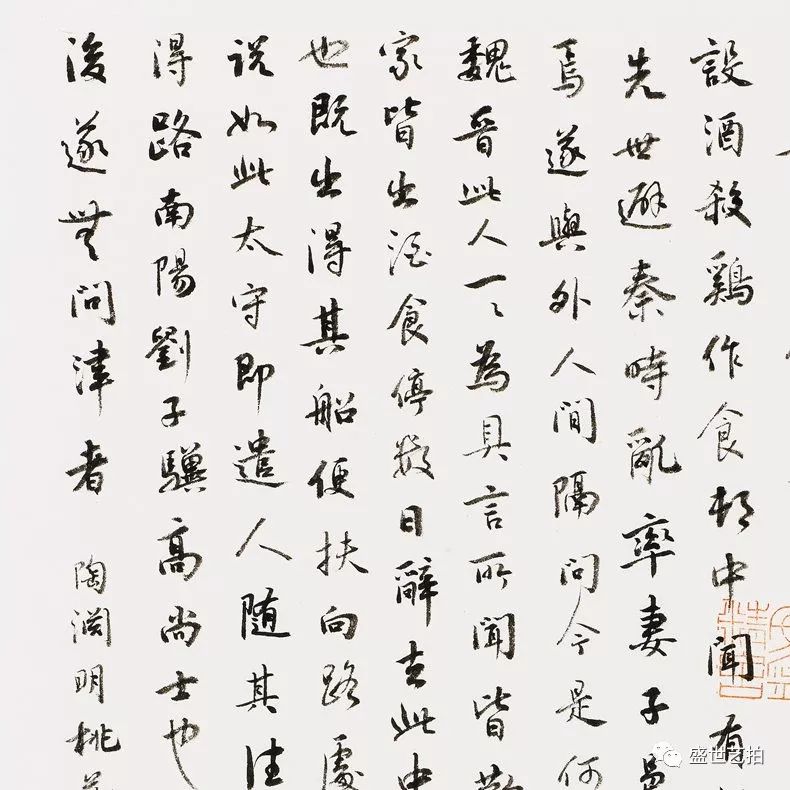 設酒殺鷄作食村中聞有
先世避秦時亂率妻子邑
焉遂與外人間隔問今是何
魏晉此人一々為具言所聞皆歎
家皆出酒食停數日辭去此中
也既出得其船便扶向路處
說如此太守即遣人隨其往
得路南陽劉子驥高尚士也
後遂無問津者
陶淵明桃花
盛世艺拍